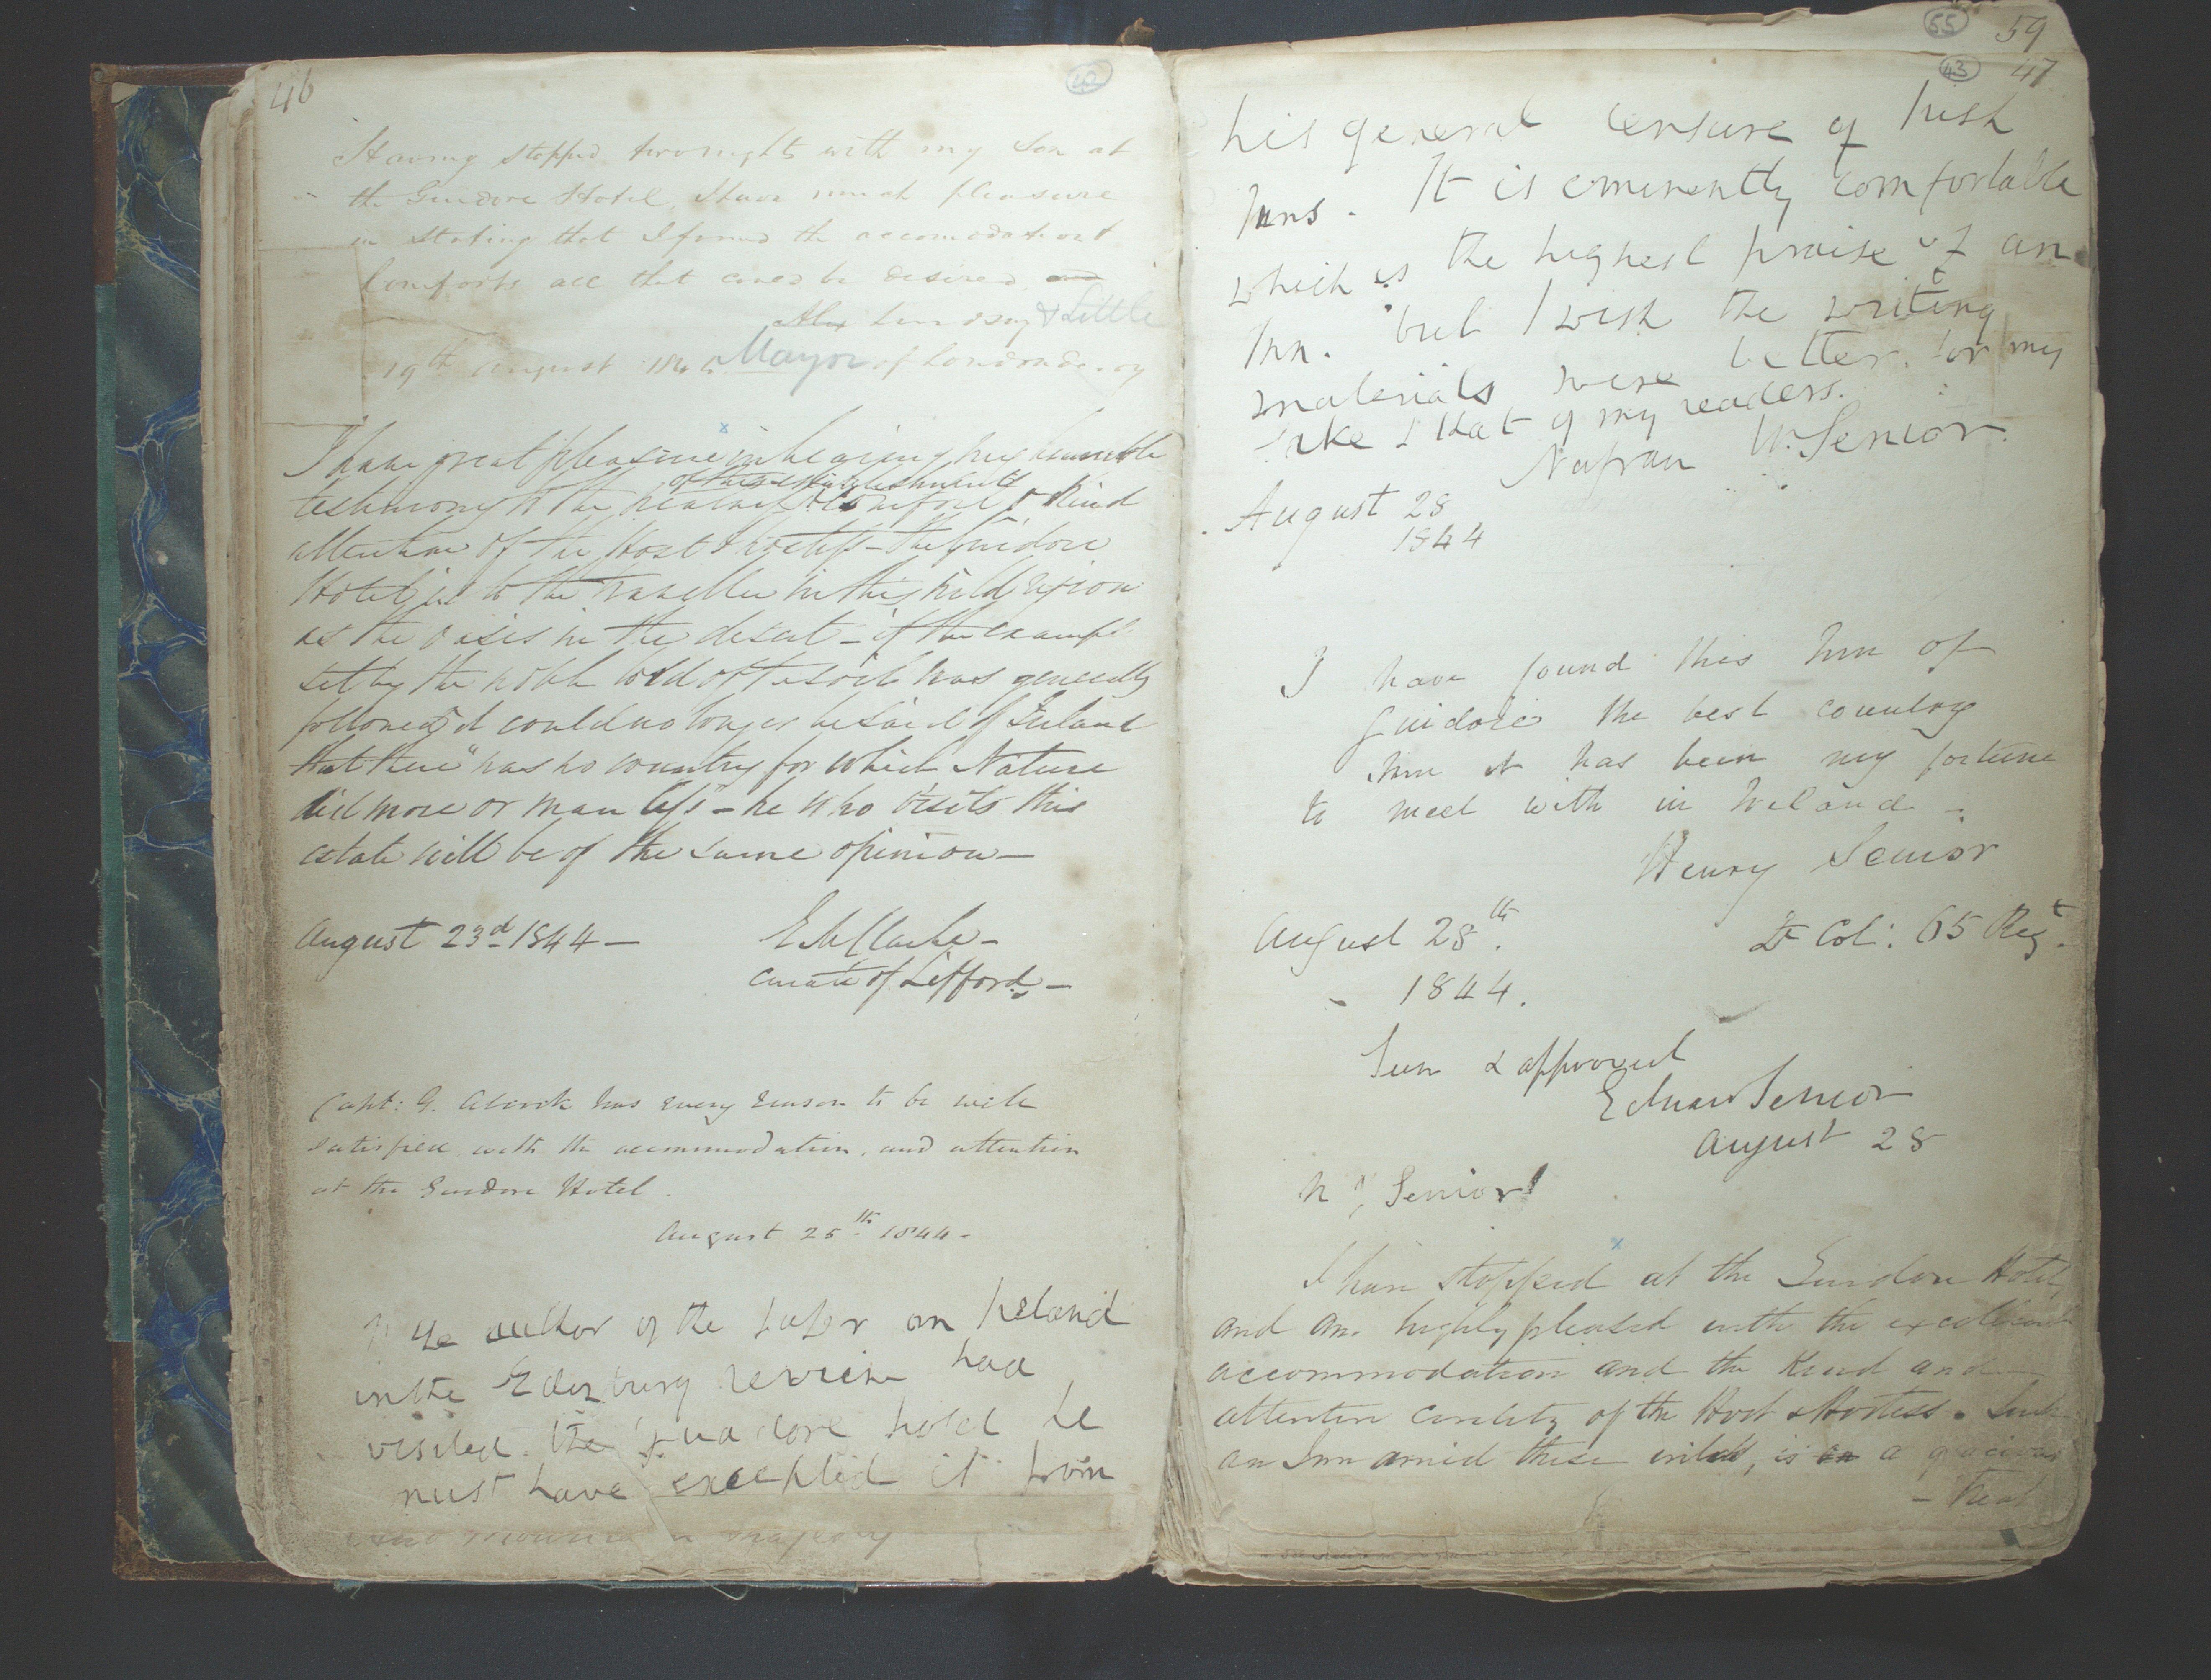 46
42
Having stopped two nights with my Son at
the Guidore Hotel, I have much pleasure
in stating that I found the accomodation &
Comforts all that could be desired
Alex Lindsay & Little
19th August 184 Mayor of Londonderry
I have great pleasure in bearing my humble
of this establishment &
testimony to the neatness & comfort & kind
attention of the Host & hostess – the Guidore
Hotel is to the traveller in this wild region
as the oasis in the desert – if the example
set by the noble lord of the soil was generally
followed it could no longer be said of Ireland
that there "was no country for which Nature
did more or man less" – he who visits this
estate will be of the same opinion –
August 23d 1844 –
E M Clarke –
Curate of Lifford –
Capt: G. has every reason to be well
satisfied with the accommodation, and attention
at the Guidore Hotel.
August 25th 1844 –
If the author of the paper on Ireland
in the Edinburg review had
visited the Guadore hotel he
must have excepted it from
55 59
43 47
his general censure of Irish
Inns. It is eminently comfortable
which is the highest praise of an
Inn. but I wish the writing
materials were better, for my
sake & that of my readers.
Nassau W. Senior.
August 28
1844
I have found this Inn of
Guidore the best country
Inn it has been my fortune
to meet with in Ireland –
Henry Senior
Lt Col: 65 Regt.
August 28th.
1844.
Seen & approved
Edward Senior
August 28
N Senior
I have stopped at the Guidore Hotel,
and am highly pleased with the excellent
accommodation and the kind and
attentive civility of the Host & Hostess. Such
an Inn amid these wilds, is a gracious
– treat